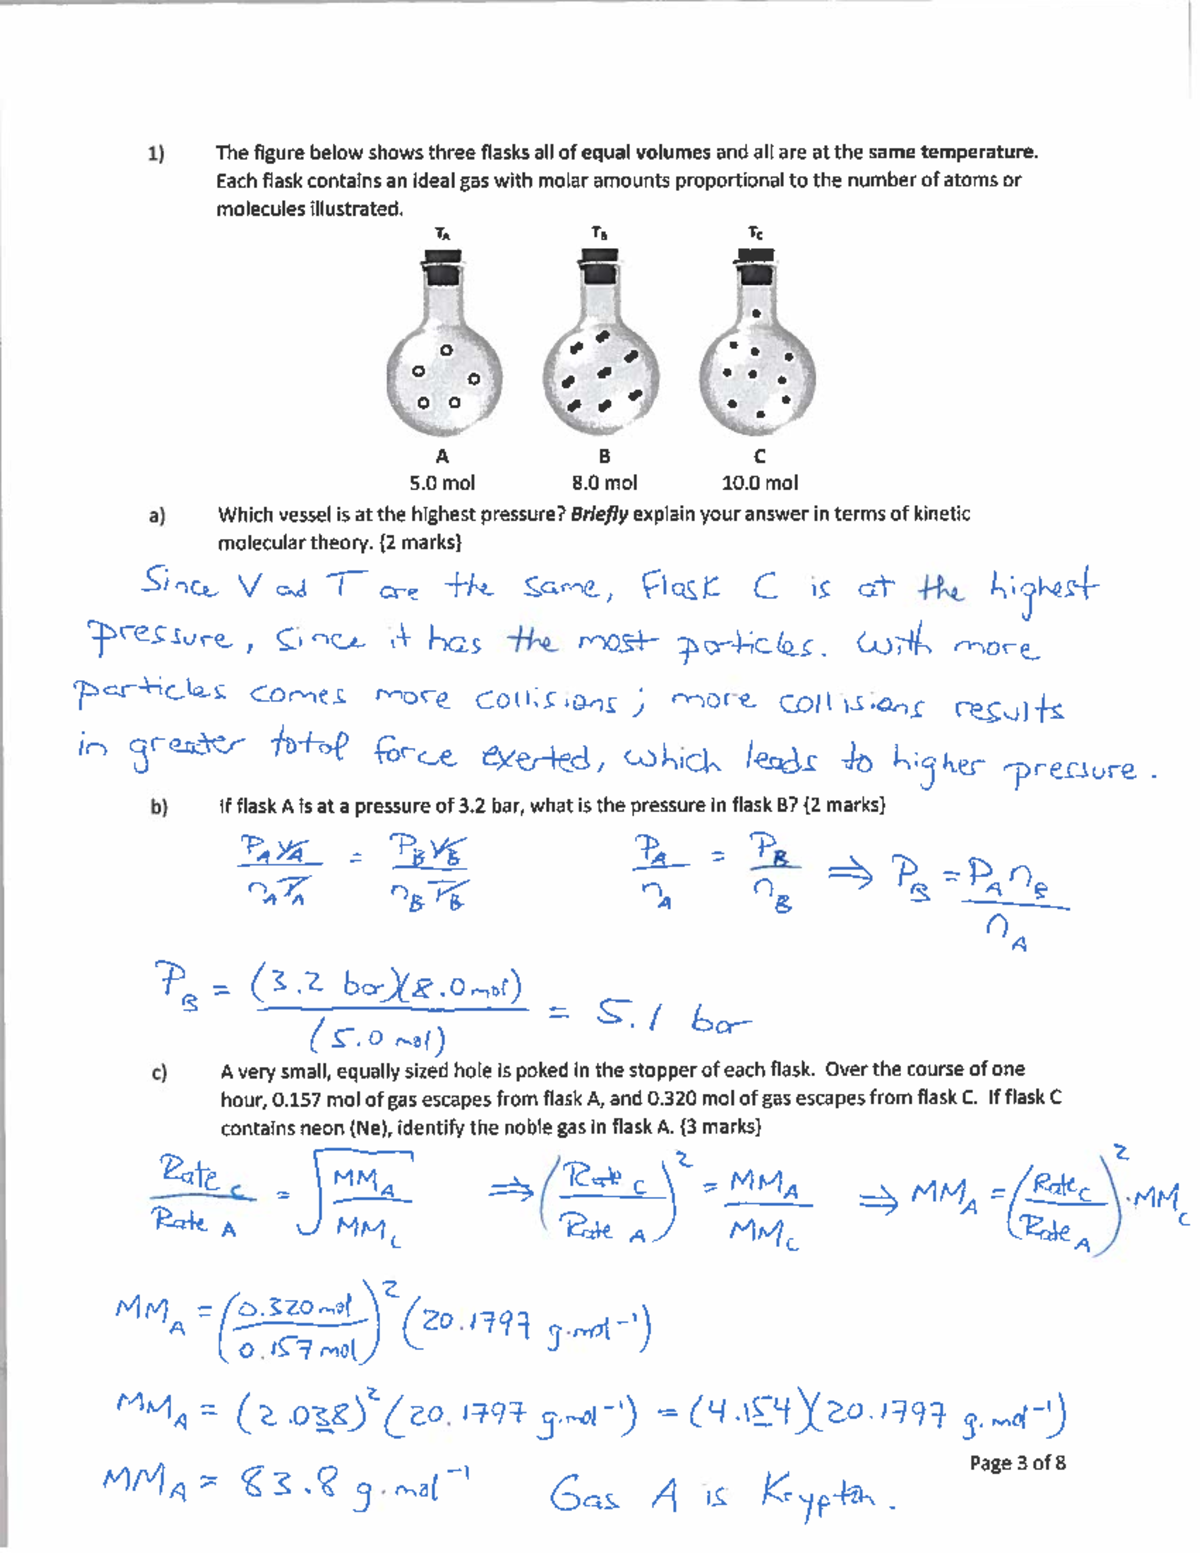 1) The figure below shows three flasks all of equal volumes and all are at the same temperature.
Each flask contains an ideal gas with molar amounts proportional to the number of atoms or
molecules illustrated.
T_A T_B T_C
A B C
5.0 mol 8.0 mol 10.0 mol
a) Which vessel is at the highest pressure? Briefly explain your answer in terms of kinetic
molecular theory. {2 marks}
Since V and T are the same, Flask C is at the highest
pressure, since it has the most particles. With more
particles comes more collisions; more collisions results
in greater total force exerted, which leads to higher pressure.
b) If flask A is at a pressure of 3.2 bar, what is the pressure in flask B? {2 marks}
P_A V_A / n_A T_A = P_B V_B / n_B T_B P_A / n_A = P_B / n_B ⇒ P_B = P_A n_B / n_A
P_B = (3.2 bar)(8.0 mol) / (5.0 mol) = 5.1 bar
c) A very small, equally sized hole is poked in the stopper of each flask. Over the course of one
hour, 0.157 mol of gas escapes from flask A, and 0.320 mol of gas escapes from flask C. If flask C
contains neon (Ne), identify the noble gas in flask A. {3 marks}
Rate C / Rate A = √(MM_A / MM_C) ⇒ (Rate C / Rate A)² = MM_A / MM_C ⇒ MM_A = (Rate C / Rate A)² · MM_C
MM_A = (0.320 mol / 0.157 mol)² (20.1797 g·mol⁻¹)
MM_A = (2.038)² (20.1797 g·mol⁻¹) = (4.154)(20.1797 g·mol⁻¹)
Page 3 of 8
MM_A = 83.8 g·mol⁻¹ Gas A is Krypton.